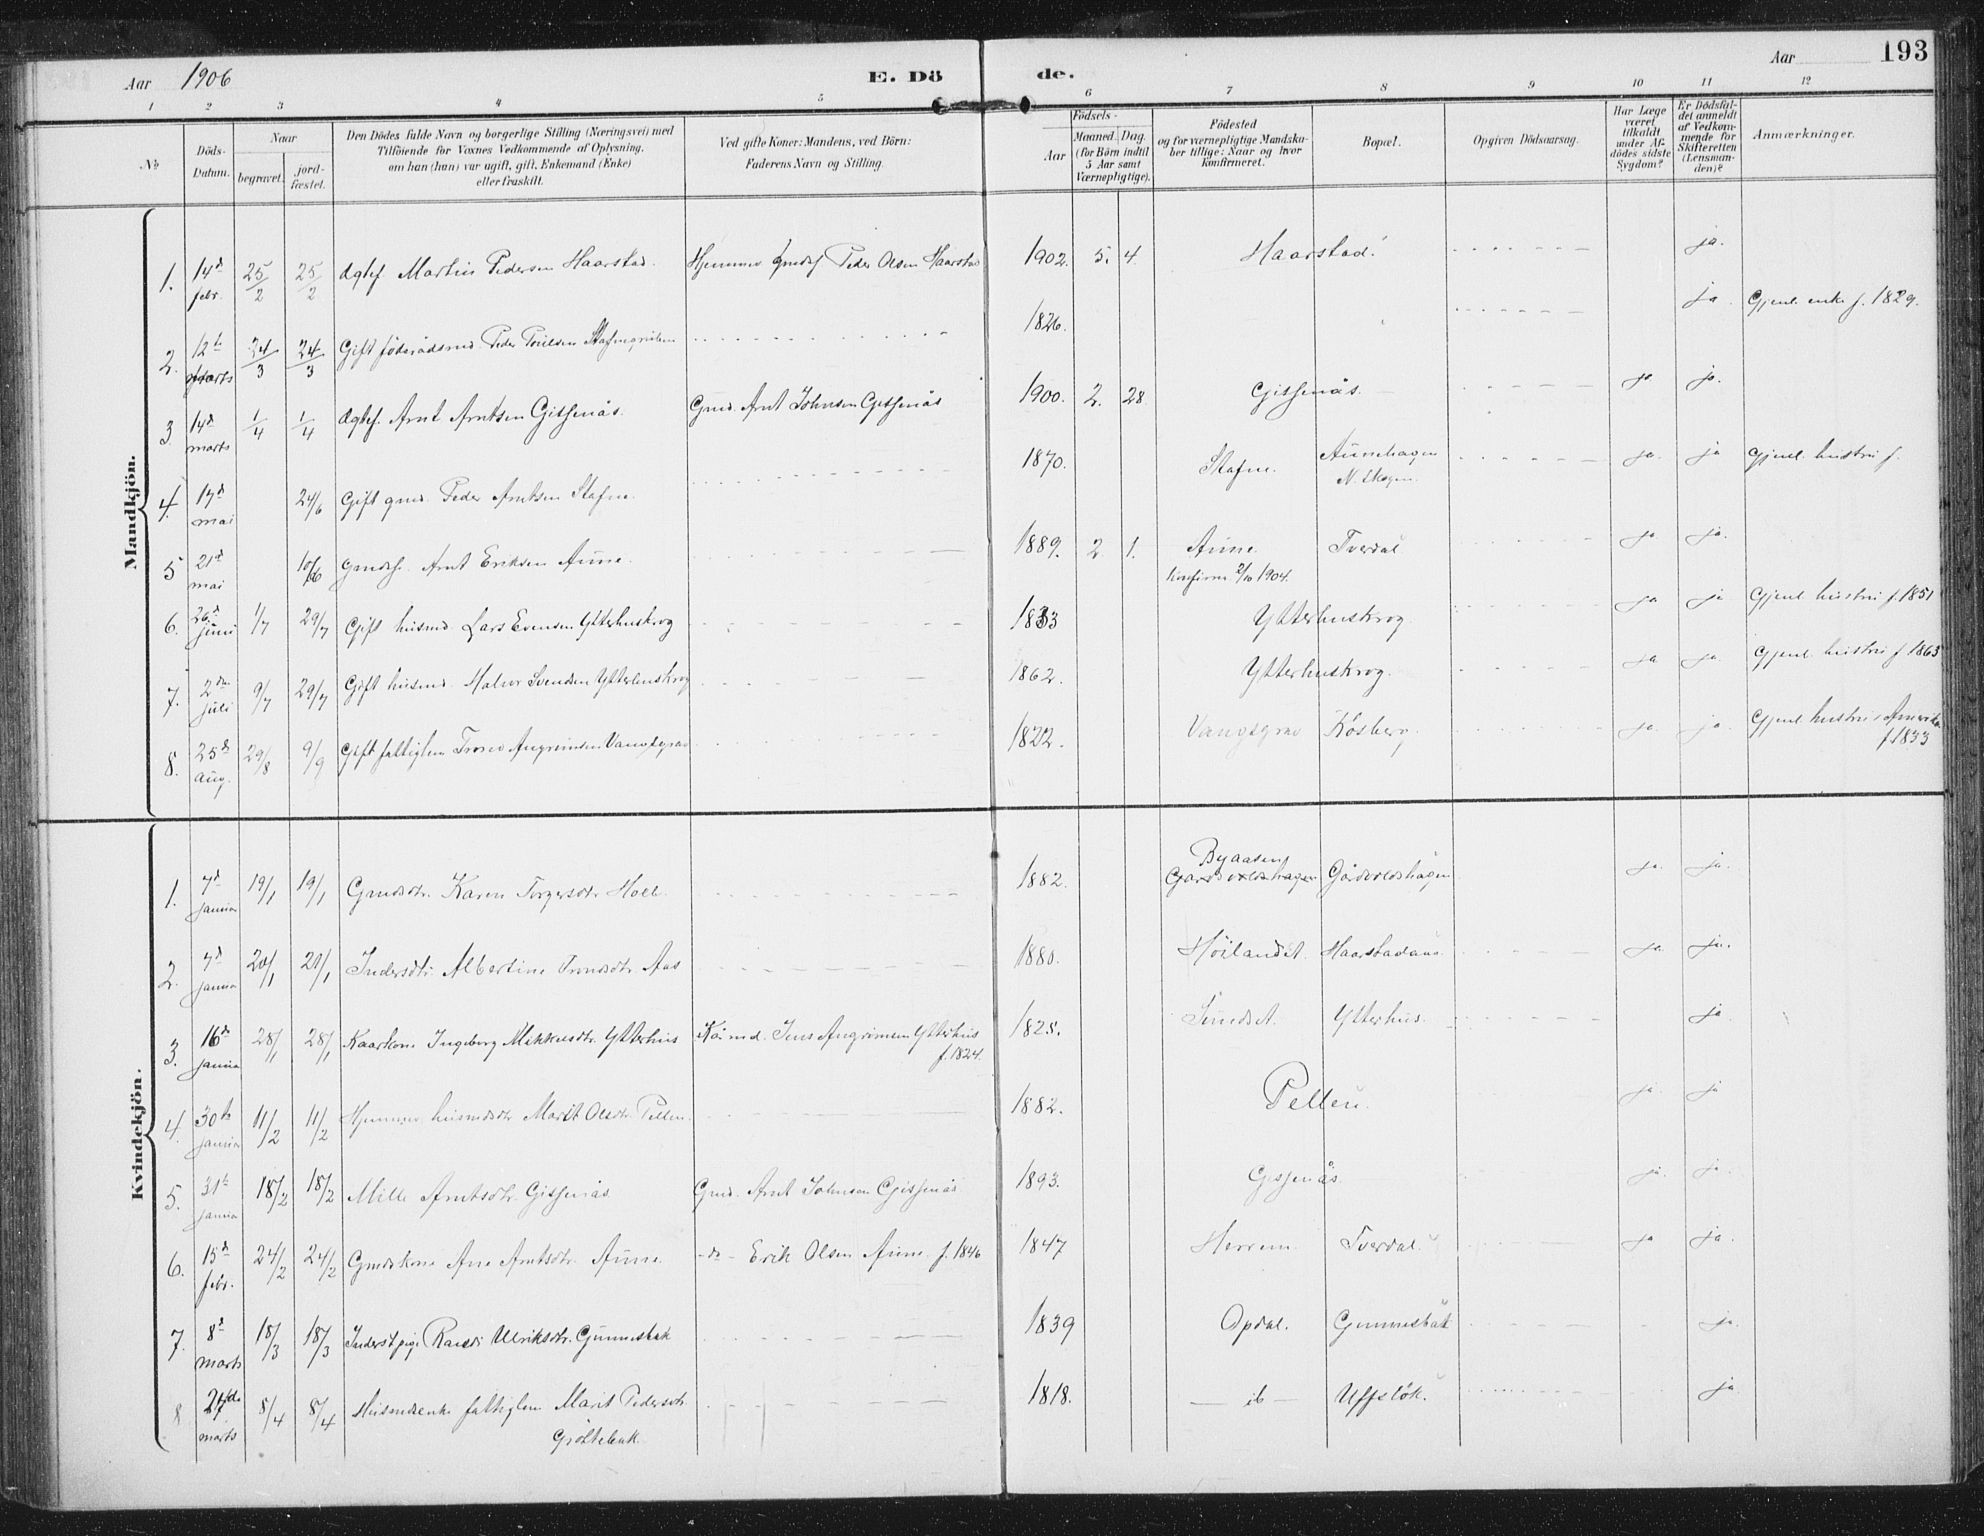 Aar 1906 E. Dö de. Aar 193
1 2 3 4 5 6 7 8 9 10 11 12
No
Döds-
Datum.
Naar
begravet.
jord-
fæstet.
Den Dödes fulde Navn og borgerlige Stilling (Næringsvei) med
Tilföiende for Voxnes Vedkommende af Oplysning,
om han (hun) var ugift, gift, Enkemand (Enke)
eller fraskilt.
Ved gifte Koner: Mandens, ved Börn:
Faderens Navn og Stilling.
Födsels-
Aar
Maaned. Dag.
(for Börn indtil
5 Aar samt
Værnepligtige).
Födested
og for værnepligtige Mandska-
ber tillige: Naar og hvor
konfirmeret.
Bopæl.
Opgiven Dödsaarsag.
Har Læge
været
tilkaldt
under Af-
dödes sidste
Sygdom?
Er Dödsfal-
det anmeldt
af Vedkom-
mende for
Skifteretten
(Lensman-
den)?
Anmærkninger.
Mandkjön.
1. 14d febr. 25/2 25/2 Martin Pedersen Haarstad. Peder Olsen Haarstad 1902. 5. 4 Haarstad. ja.
2. 12te marts 24/3 24/3 Gift föderådsmd. Peder 1826. ja. Gjenl. enke f. 1829.
3. 14d marts 1/4 1/4 Arnt Arntsen Gissenås. Gmd. Arnt Johnsen Gissenås 1900. 2. 28 Gissenås. ja ja.
4. 17d mai 24/6 Gift gmd. Peder Arntsen Stafne. 1870. Stafne. Aunehagen N. Skogn. ja. ja Gjenl. hustru f.
5 21d mai 10/6 Arnt Eriksen Aune. 1889. 2 1. Aune. Konfirm. 2/10 1904. Tverdal ja ja.
6. 26d juni 1/7 29/7 Gift husmd. Lars Evensen Ytterhuskrog 1833 Ytterhuskrog. ja ja Gjenl hustru f. 1851
7. 2den juli 9/7 29/7 Gift husmd. Halvor Svendsen Ytterhuskrog 1862. Ytterhuskrog. ja ja. Gjenl. hustru f 1863
8. 25d aug. 29/8 9/9 Gift fattiglem Trond Angrimsen Vangsgrav 1822. Vangsgrav Kösberg. ja. ja Gjenl hustru i Amerika
f. 1833
Kvindekjön.
1. 7d januar 19/1 19/1 Gmdsdtr. Karen Torgersdtr. Holl. 1882. Byaasen Gardsvoldshagen Gardsvoldshagen ja. ja.
2. 7d januar 20/1 20/1 Indersdtr. Albertine Aas 1880. Höilandet. Haarstadaas. ja. ja.
3. 16d januar 28/1 28/1 Kaarkone Ingeborg Mikkelsdtr. Ytterhus Kårmd. Jens Angrimsen Ytterhus
f. 1824. 1825. Sundset. Ytterhus. ja.
4. 30te januar 11/2 11/2 husmdsdtr Marit Olsdtr. Pellen. 1882. Pellen. ja. ja
5. 31te januar 18/2 18/2 Mille Arntsdtr. Gissenås. Gmd. Arnt Johnsen Gissenås. 1893. Gissenås ja. ja.
6. 15d febr. 24/2 24/2 Gmdskone Ane Arntsdtr. Aune. -do- Erik Olsen Aune f. 1846 1847 Herrem. Tverdal. ja ja.
7. 8d marts 18/3 18/3 Inderstpige Randi Ulriksdtr. Gunnesbæk 1839 Opdal. Gunnesbæk ja.
8 27de marts 8/4 8/4 Husmdsenke fattiglem Marit Pedersdtr. 1818. — ib — Uffslök. ja